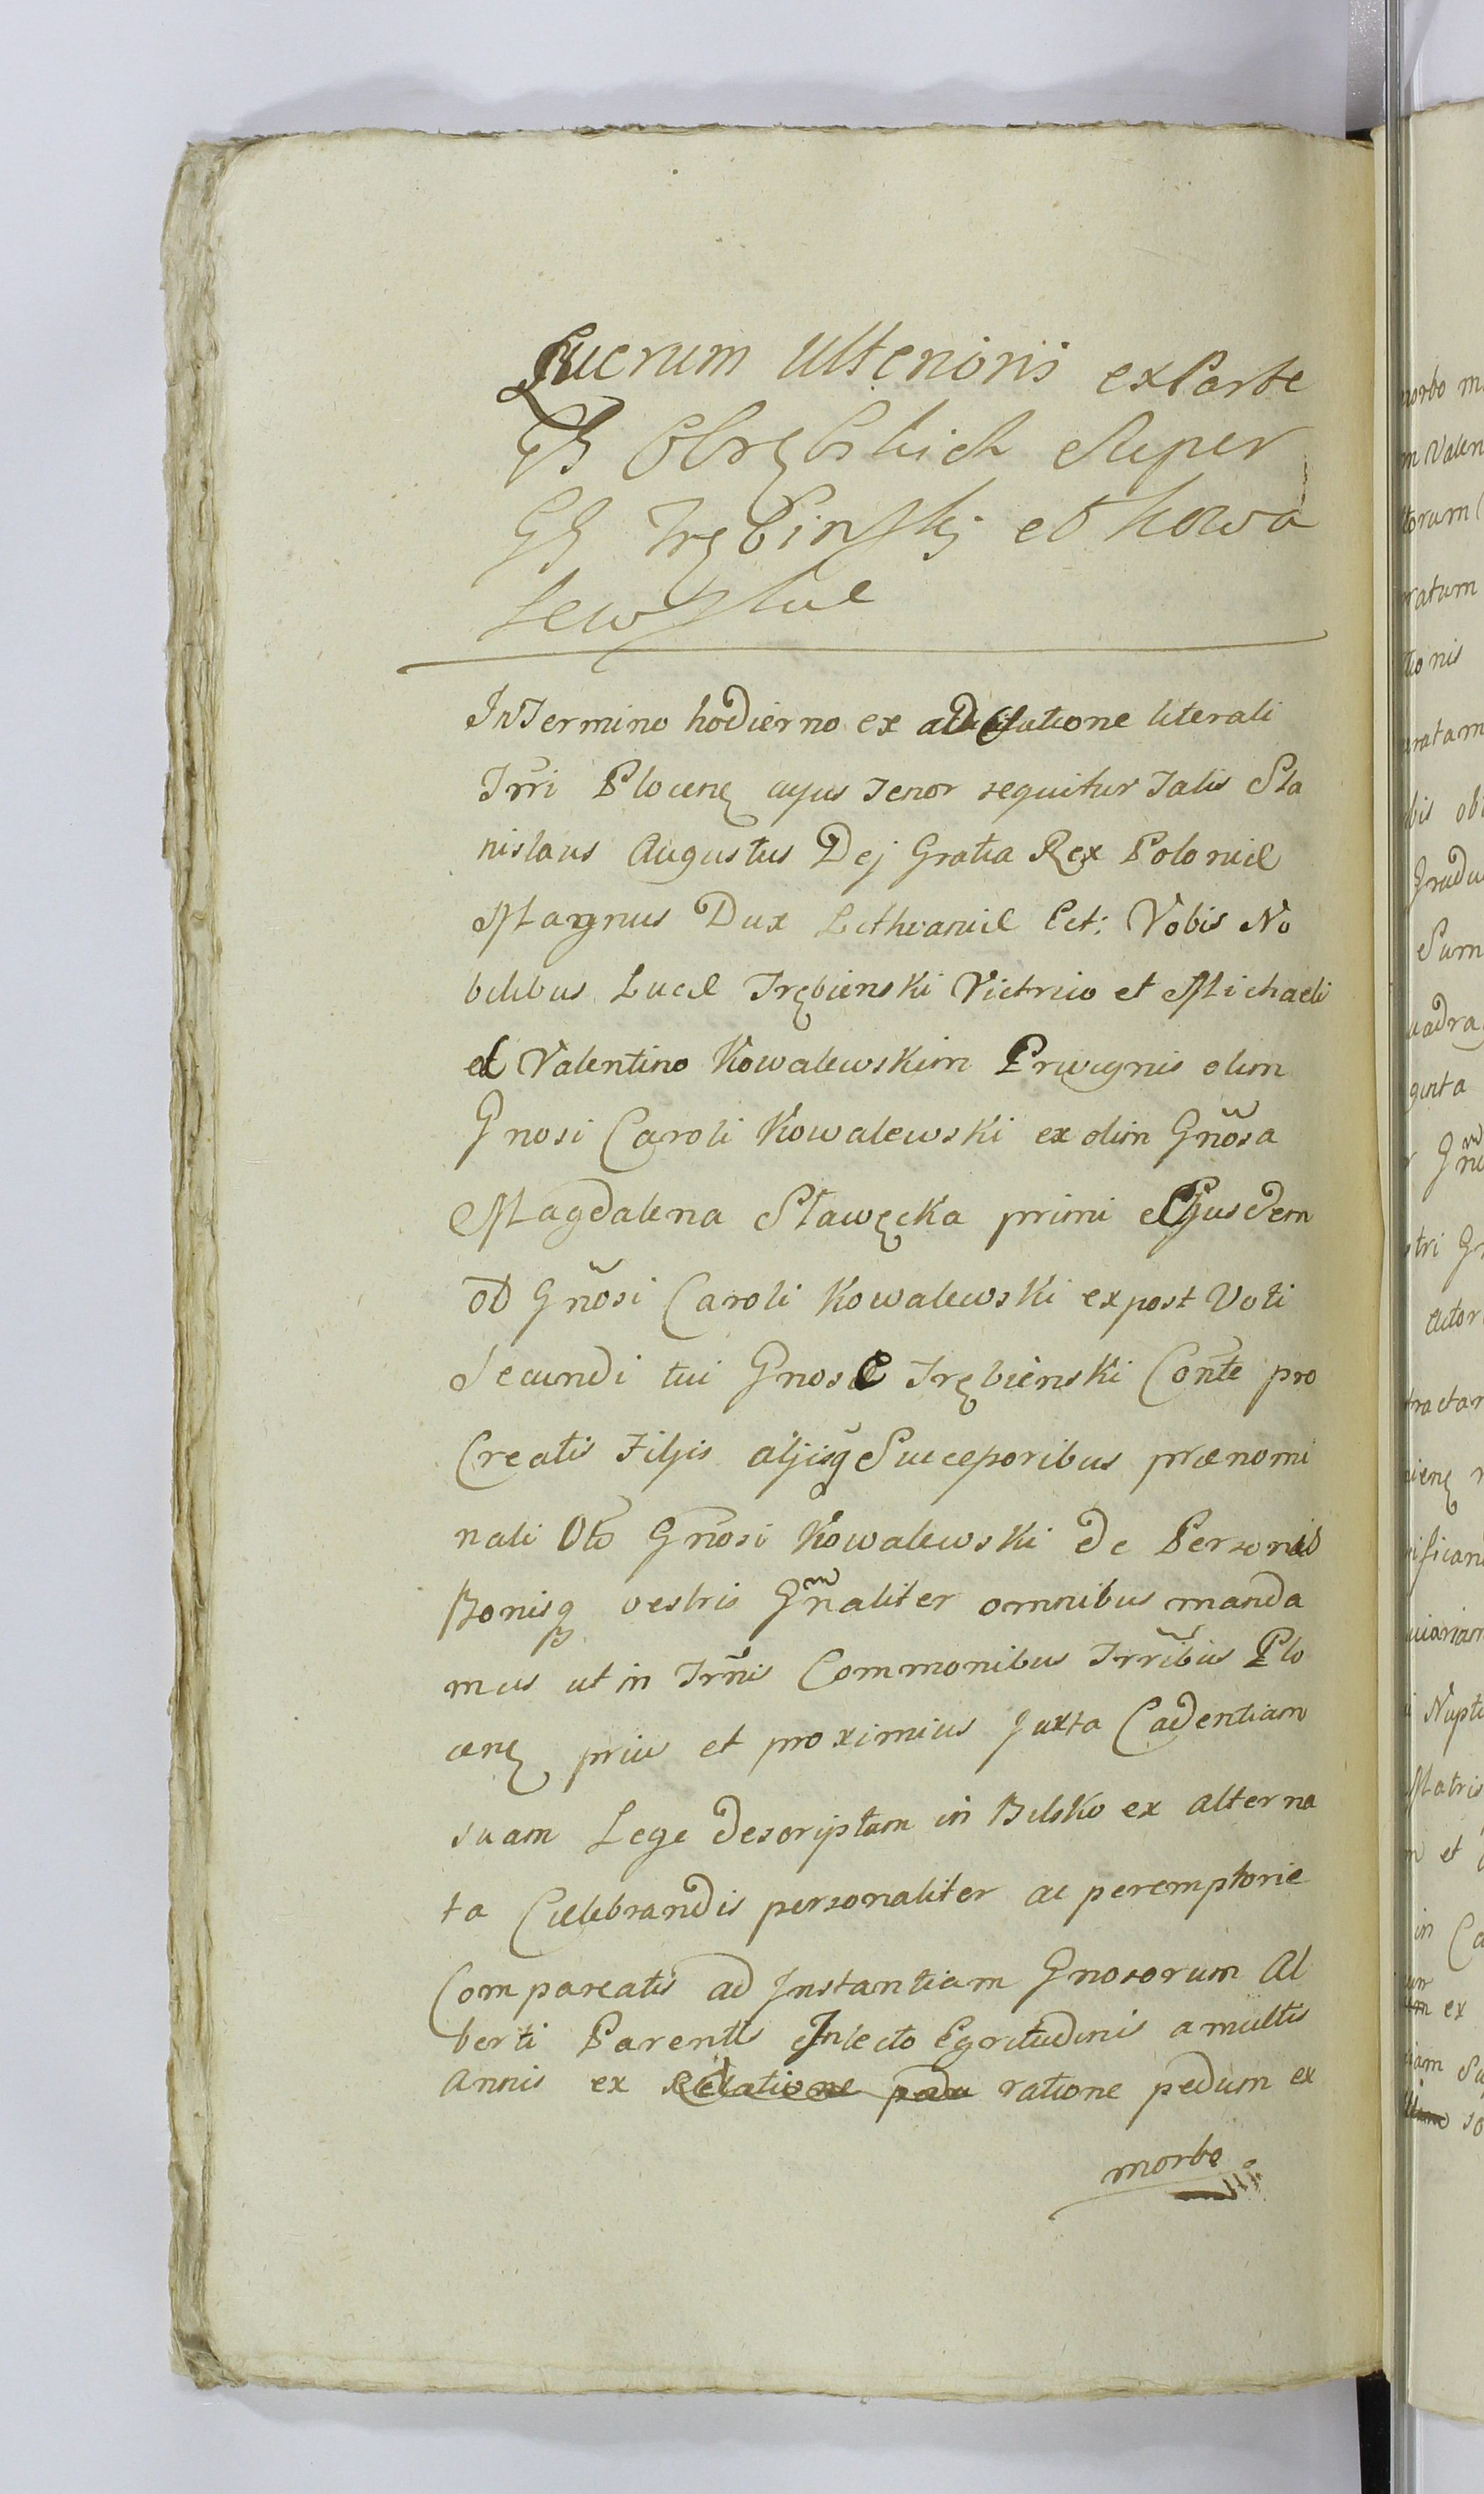 Lucrum Ulterioris ex Parte
GG Obrębskich Super
GG Trębinskj et Kowa
lewskie
In Termino hodierno ex adcitatione literali
Trri Plocenę cujus Tenor sequitur Talis Sta
nislaus Augustus Dej Gratia Rex Poloniæ
Magnus Dux Lithvaniæ Ect: Vobis No
bilibus Lucæ Trębienski Victrico et Michaeli
et Valentino Kowalewskim Privignis olim
Gnosi Caroli Kowalewski ex olim Gnosa
Magdalena Sławęcka primi Ejusdem
oD Gnosi Caroli Kowalewski expost Voti
Secundi tui Gnosæ Trębienski Conte pro
Creatis Filjis aljisq Successoribus prænomi
nati Oto Gnosi Kowalewski De Personis
Bonisq vestris Gnaliter omnibus manda
mus ut in Trnis Commonibus Trribus Plo
cenę priu et proximius Juxta Cadentiam
suam Lege descriptam in Bilsko ex alterna
ta Cielebrandis personaliter ac peremptorie
Compareatis ad Instantiam Gnosorum Al
berti Parentis Inlecto Egritudinis a multis
Annis ex Relatione pedu ratione pedum ex
morbo